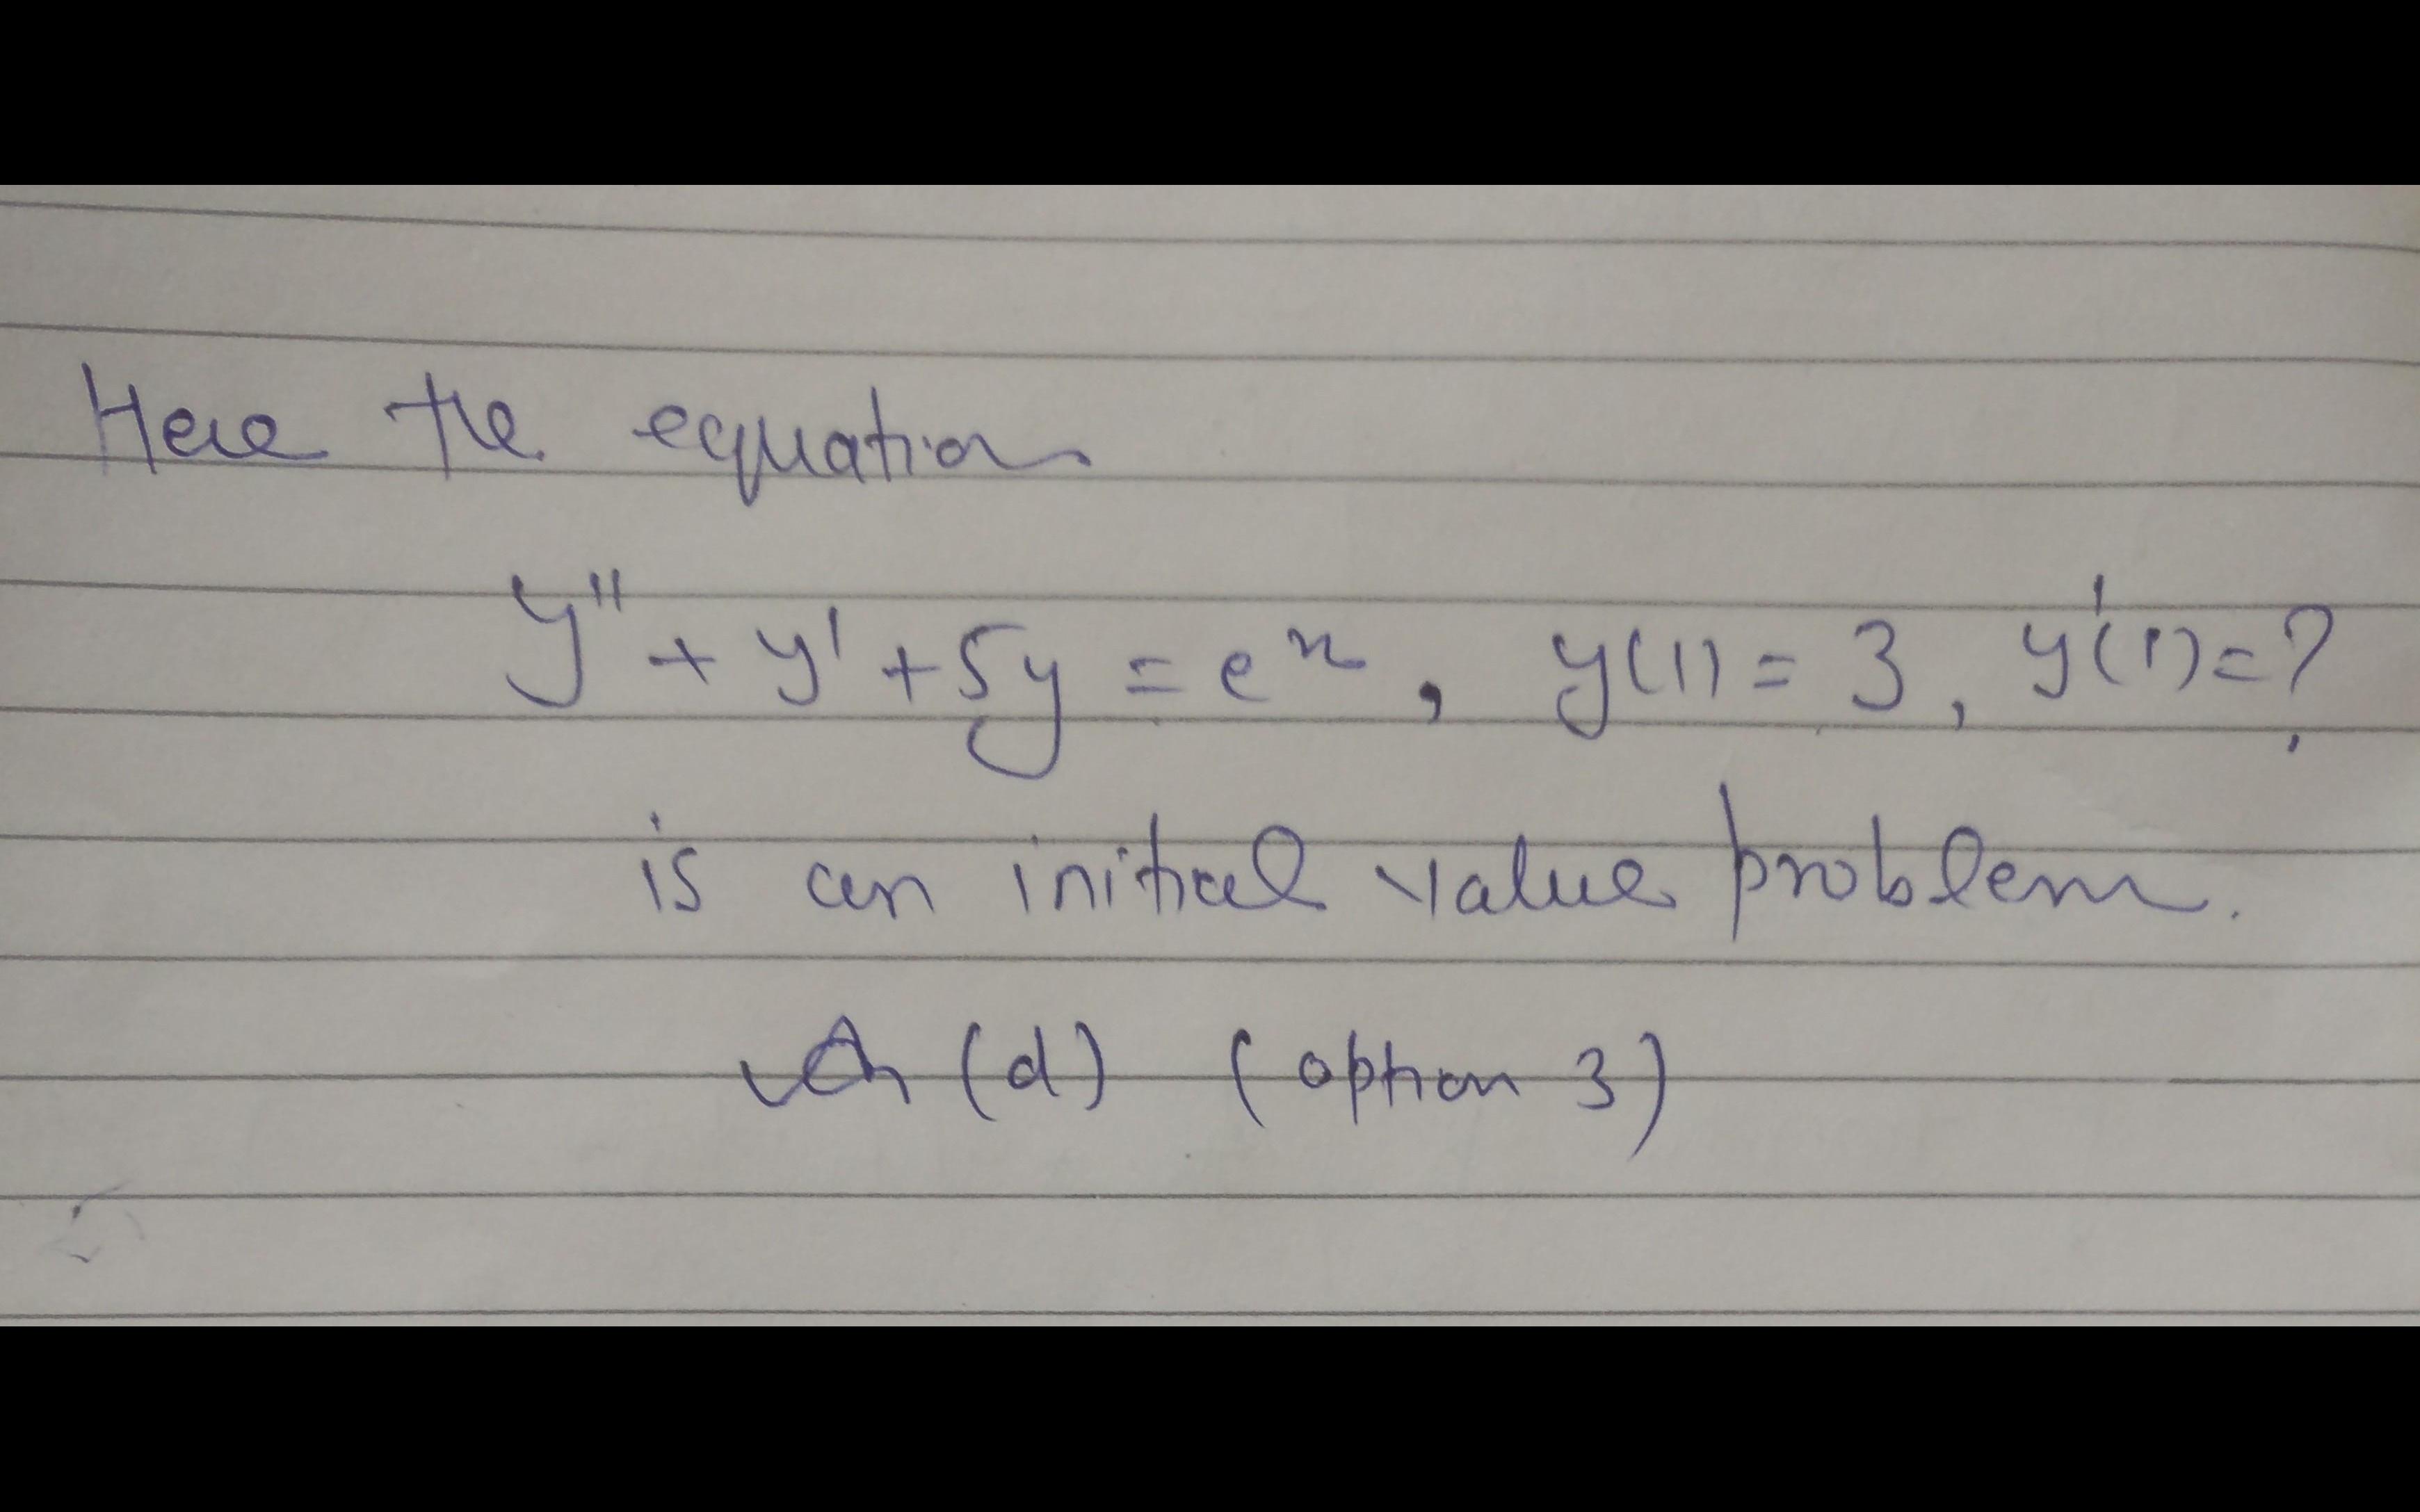 Here the equation
y'' + y' + 5y = eˣ, y(1) = 3, y'(1) = ?
is an initial value problem.
(d) (option 3)